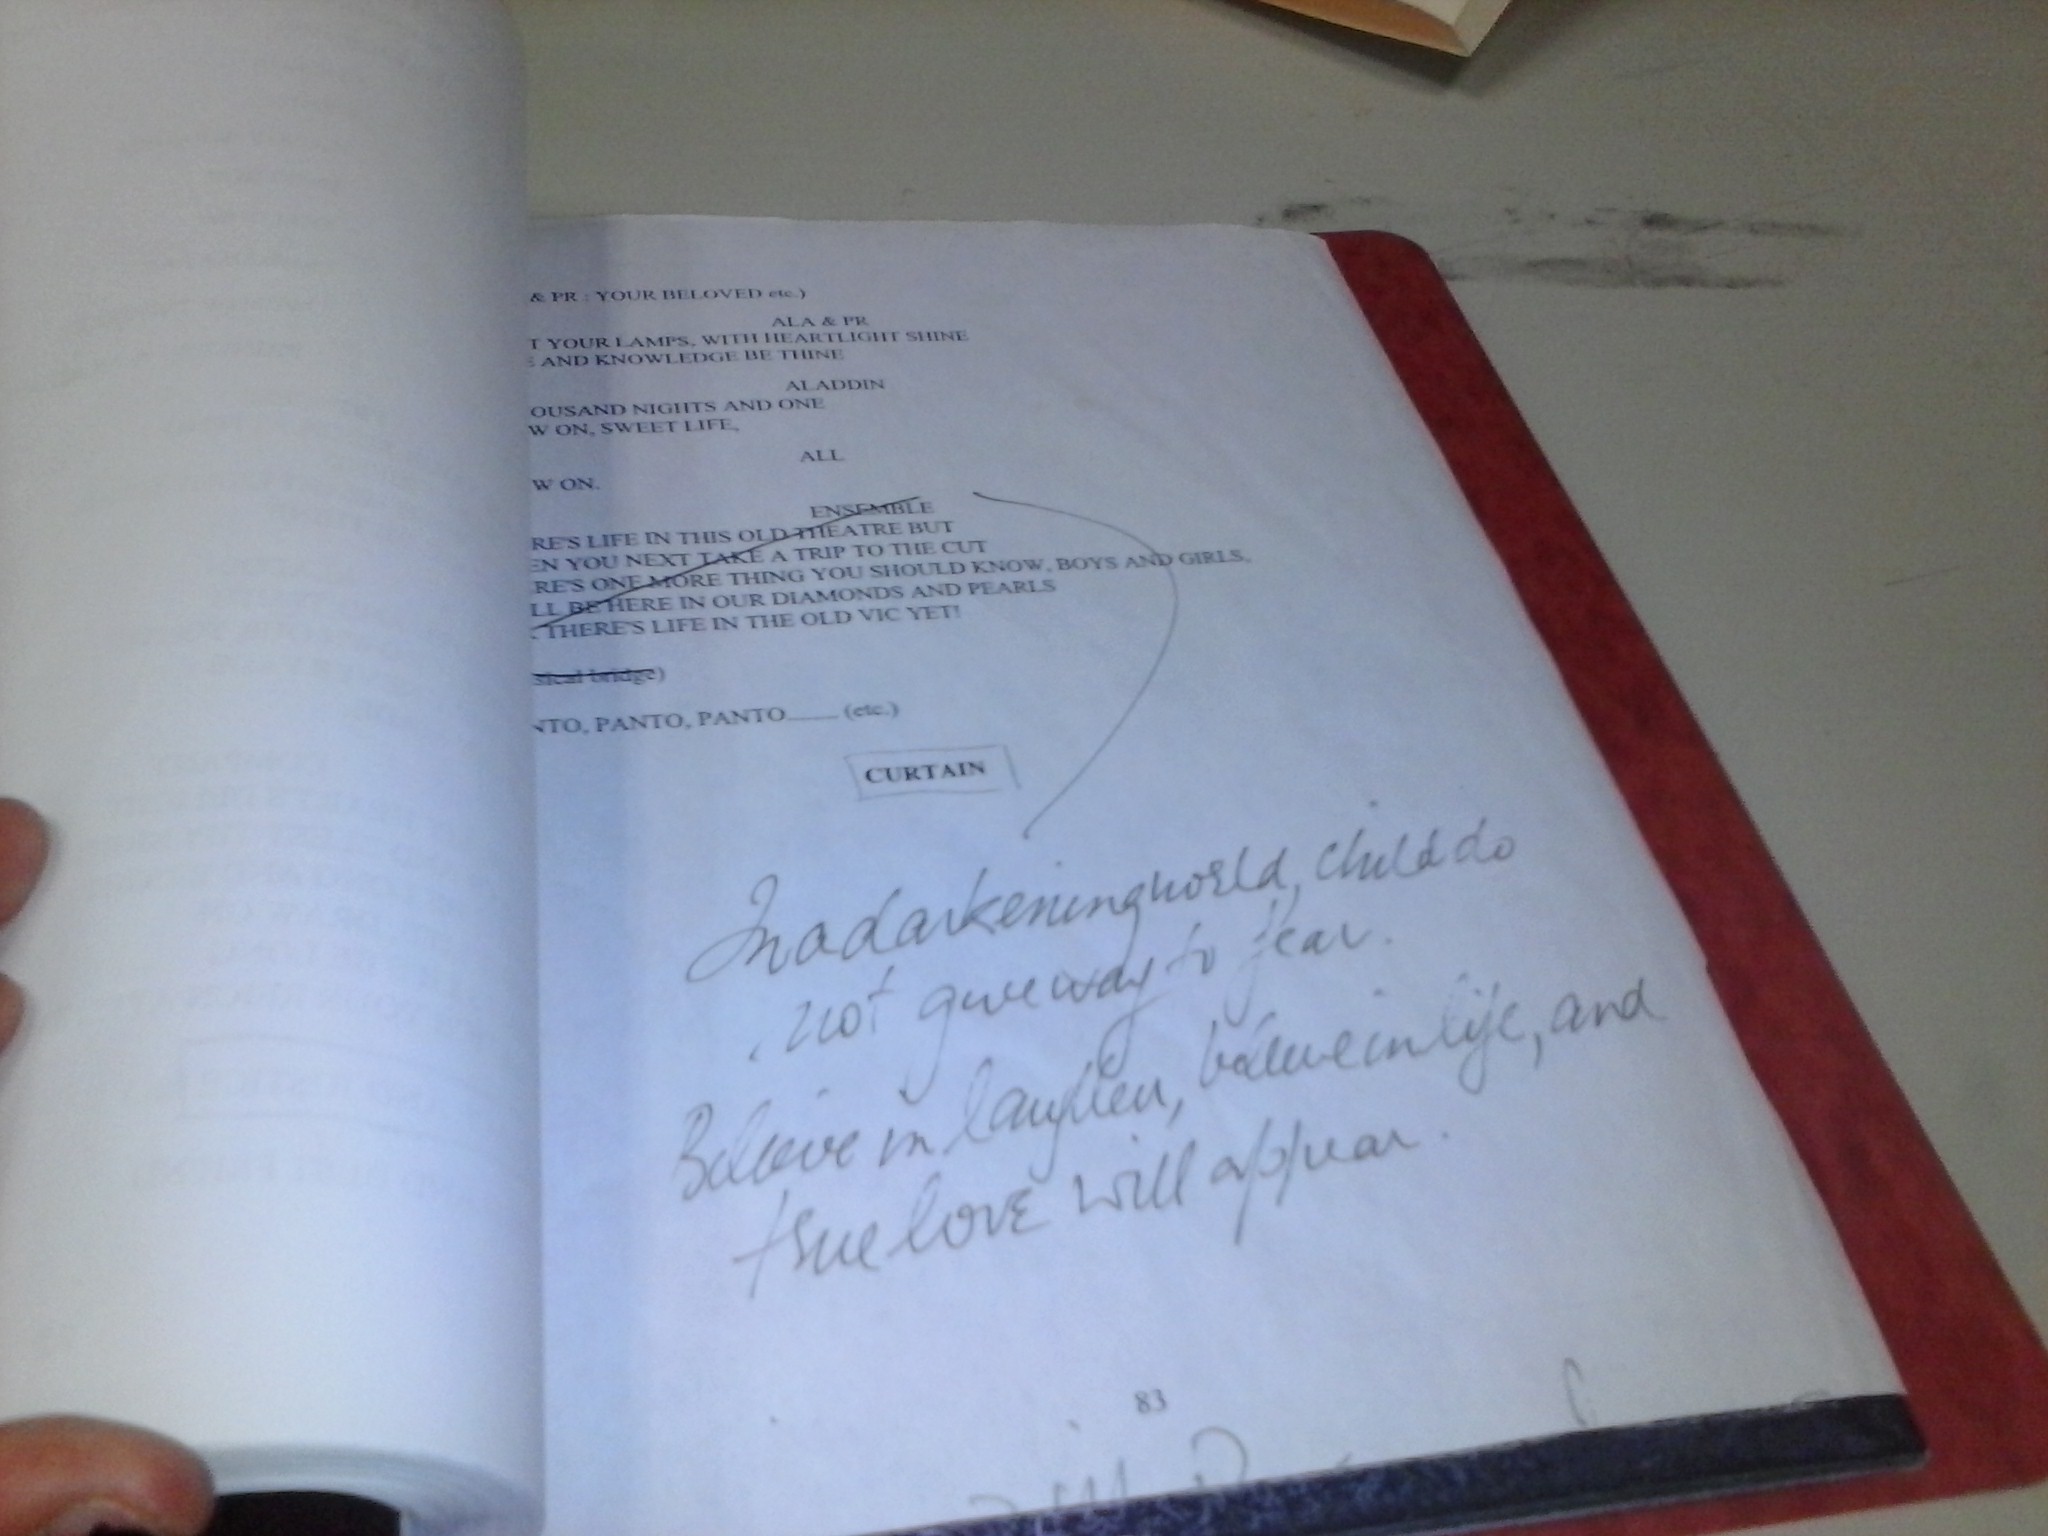 & PR : YOUR BELOVED etc.)
ALA & PR
T YOUR LAMPS, WITH HEARTLIGHT SHINE
E AND KNOWLEDGE BE THINE
ALADDIN
OUSAND NIGHTS AND ONE
W ON, SWEET LIFE,
ALL
W ON.
ENSEMBLE
RE'S LIFE IN THIS OLD THEATRE BUT
EN YOU NEXT TAKE A TRIP TO THE CUT
ERE'S ONE MORE THING YOU SHOULD KNOW, BOYS AND GIRLS,
LL BE HERE IN OUR DIAMONDS AND PEARLS
THERE'S LIFE IN THE OLD VIC YET!
sical bridge)
NTO, PANTO, PANTO____ (etc.)
CURTAIN
In a darkening world, child do
not give way to fear.
Believe in laughter, believe in life, and
true love will appear.
83